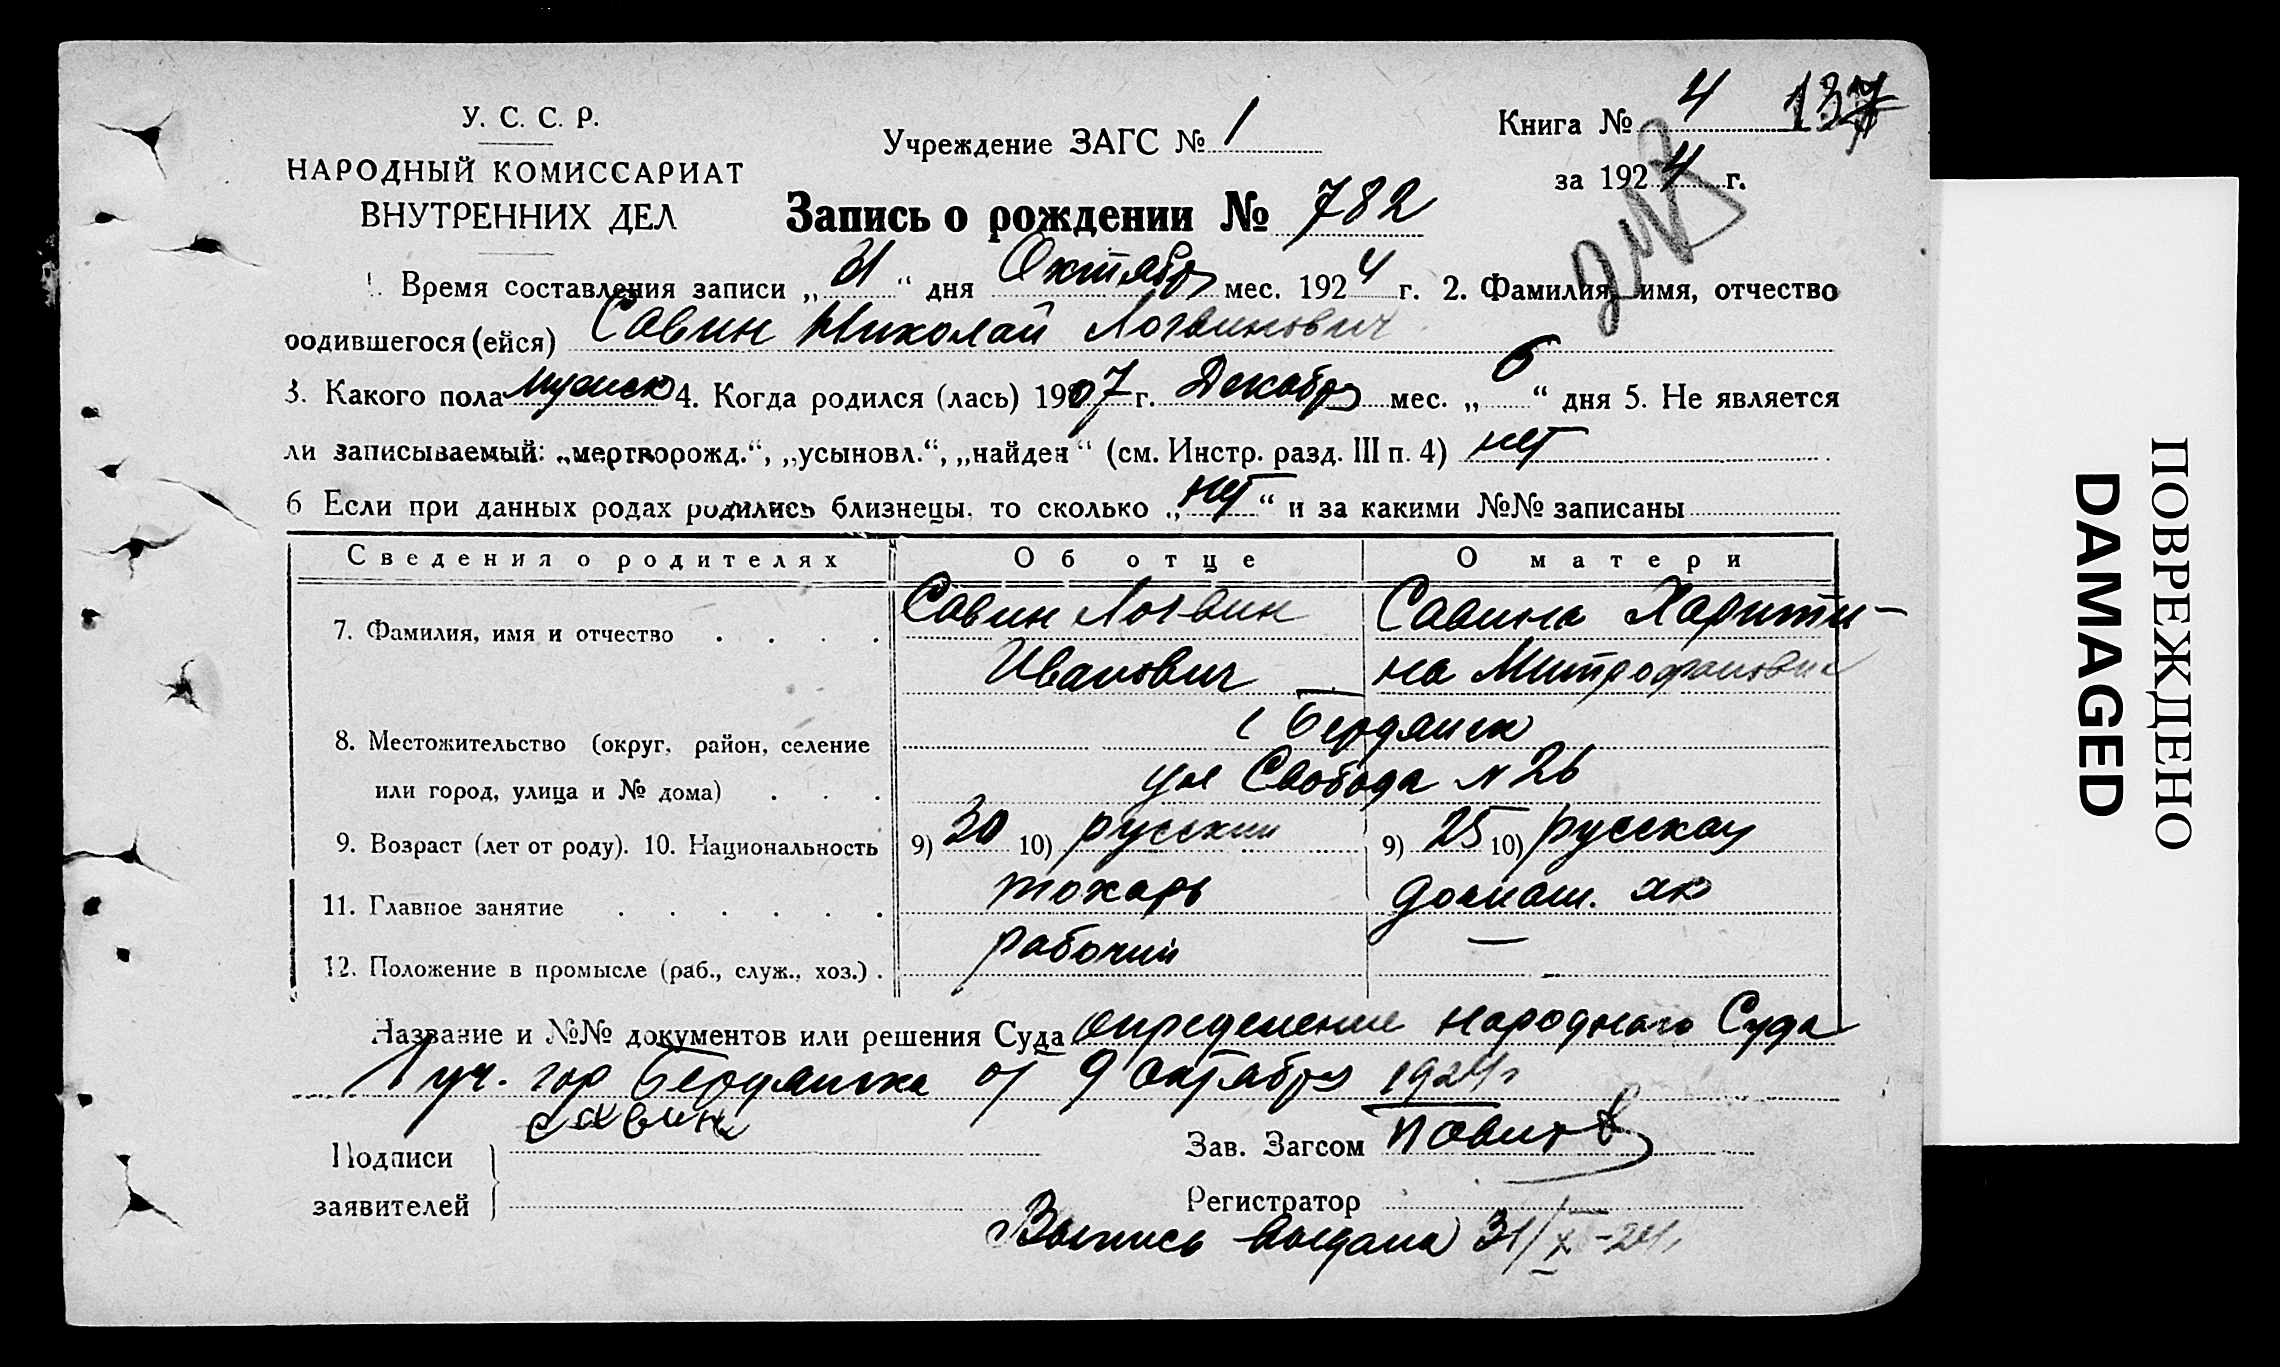 У. С. С. Р.
НАРОДНЫЙ КОМИССАРИАТ
ВНУТРЕННИХ ДЕЛ
Учреждение ЗАГС № 1
Книга № 4 137
за 1924 г.
Запись о рождении № 782
1. Время составления записи „31“ дня Октября мес. 1924 г. 2. Фамилия, имя, отчество
родившегося (ейся) Савин Николай Логвинович
3. Какого пола мужск 4. Когда родился (лась) 1907 г. Декабря мес. „6“ дня 5. Не является
ли записываемый: „мертворожд.“, „усыновл.“, „найден“ (см. Инстр. разд. III п. 4) нет
6 Если при данных родах родились близнецы, то сколько „нет“ и за какими №№ записаны
Сведения о родителях Об отце О матери
7. Фамилия, имя и отчество Савин Логвин Савина Харити-
Иванович на Митрофановн
8. Местожительство (округ, район, селение г Бердянск
или город, улица и № дома) ул Свобода № 26
9. Возраст (лет от роду). 10. Национальность 9) 30 10) русский 9) 25 10) русская
11. Главное занятие токарь домаш. хо
12. Положение в промысле (раб., служ., хоз.) рабочий —
Название и №№ документов или решения Суда определение народного Суда
1 уч. гор Бердянска от 9 октября 1924 г
Подписи савин
заявителей
Зав. Загсом
Регистратор
Выпись выдана 31/X-24 г.
ПОВРЕЖДЕНО
DAMAGED